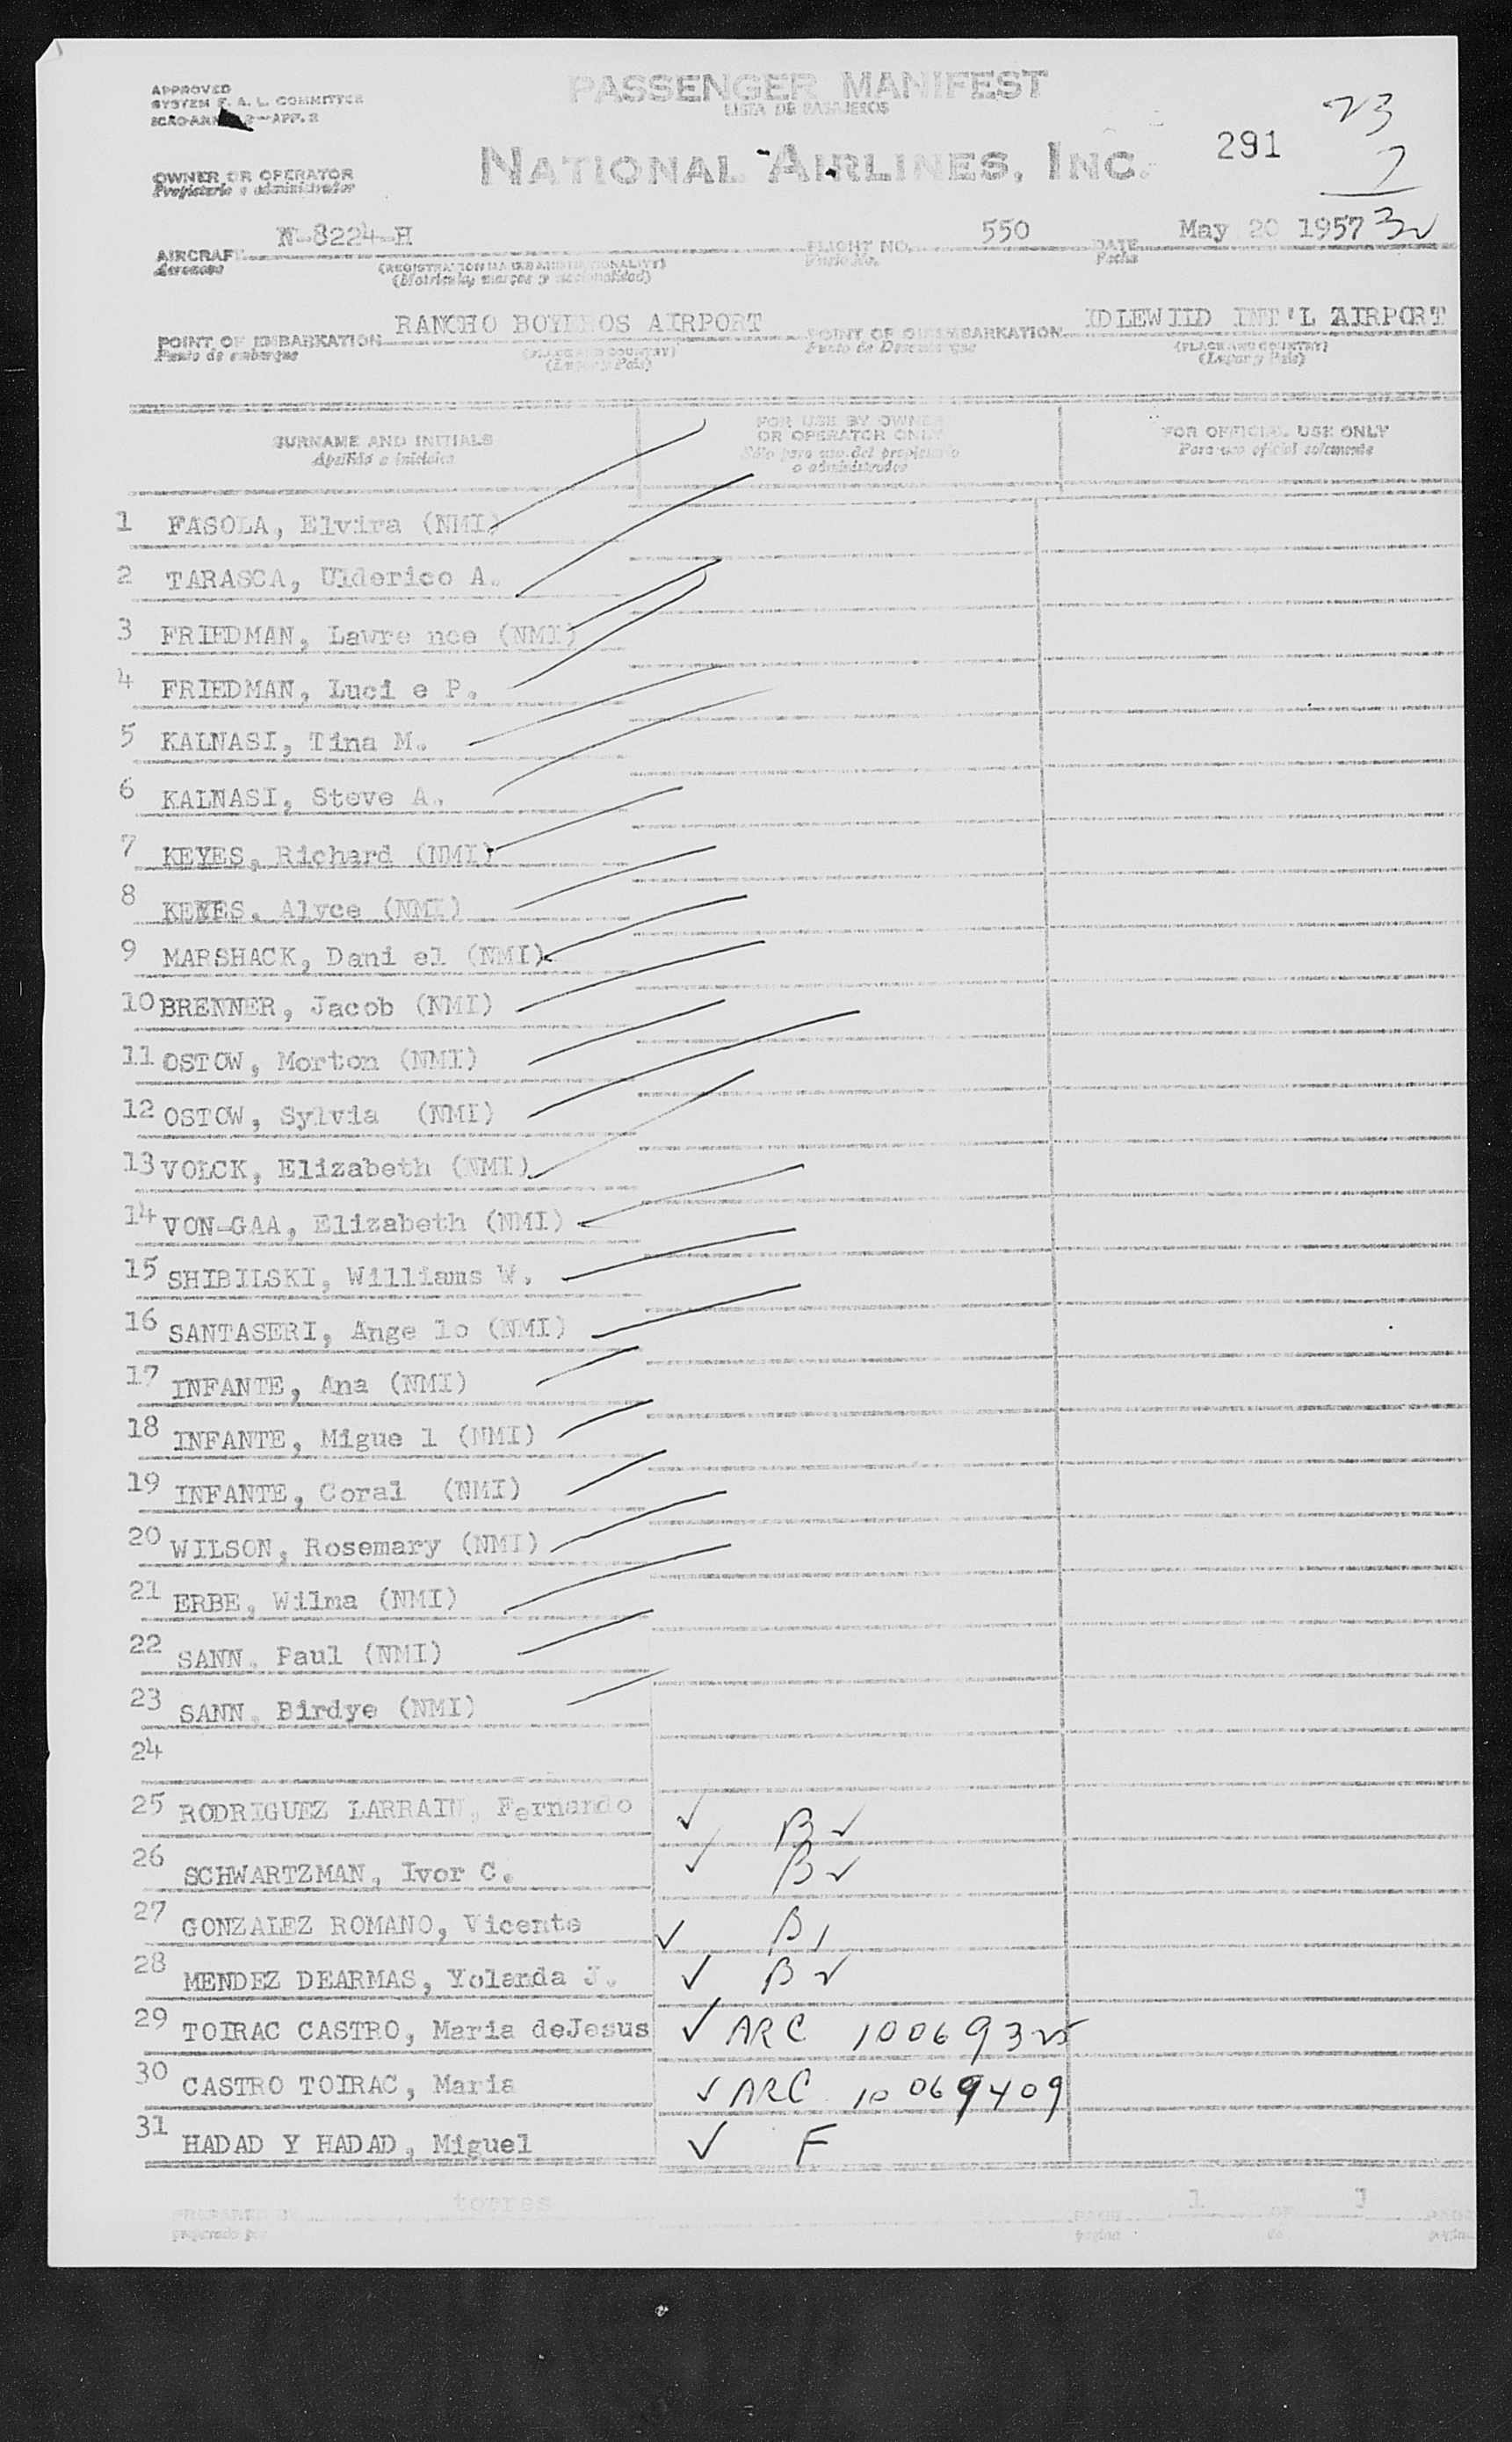 PASSENGER MANIFEST
LISTA DE PASAJEROS
APPROVED
SYSTEM F. A. L. COMMITTEE
APP. 2
NATIONAL AIRLINES, INC.
291
23
7
30
OWNER OR OPERATOR
Propietario o administrador
AIRCRAFT N-8224-H FLIGHT NO. 550 DATE May 20 1957
Aeronave (REGISTRATION MARKS AND NATIONALITY) Vuelo No. Fecha
(Matricula, marcas y nacionalidad)
POINT OF EMBARKATION RANCHO BOYEROS AIRPORT POINT OF DISEMBARKATION IDLEWIID INT'L AIRPORT
Punto de embarque (PLACE AND COUNTRY) Punto de Desembarque (PLACE AND COUNTRY)
(Lugar y Pais) (Lugar y Pais)
SURNAME AND INITIALS
Apellido e iniciales
FOR USE BY OWNER
OR OPERATOR ONLY
Sólo para uso del propietario
o administrador
FOR OFFICIAL USE ONLY
Para uso oficial solamente
1 FASOLA, Elvira (NMI)
2 TARASCA, Ulderico A.
3 FRIEDMAN, Lawre nce (NMI)
4 FRIEDMAN, Luci e P.
5 KALNASI, Tina M.
6 KALNASI, Steve A.
7 KEYES, Richard (NMI)
8 KEYES, Alyce (NMI)
9 MARSHACK, Dani el (NMI)
10 BRENNER, Jacob (NMI)
11 OSTOW, Morton (NMI)
12 OSTOW, Sylvia (NMI)
13 VOLCK, Elizabeth (NMI)
14 VON-GAA, Elizabeth (NMI)
15 SHIBILSKI, Williams W.
16 SANTASERI, Ange lo (NMI)
17 INFANTE, Ana (NMI)
18 INFANTE, Migue l (NMI)
19 INFANTE, Coral (NMI)
20 WILSON, Rosemary (NMI)
21 ERBE, Wilma (NMI)
22 SANN, Paul (NMI)
23 SANN, Birdye (NMI)
24
25 RODRIGUEZ LARRAIN, Fernando ✓ B ✓
26 SCHWARTZMAN, Ivor C. ✓ B ✓
27 GONZALEZ ROMANO, Vicente ✓ B 1
28 MENDEZ DEARMAS, Yolanda J. ✓ B ✓
29 TOIRAC CASTRO, Maria deJesus ✓ ARC 10069325
30 CASTRO TOIRAC, Maria ✓ ARC 10069409
31 HADAD Y HADAD, Miguel ✓ F
PREPARED BY torres PAGE 1 OF 1
preparado por página de